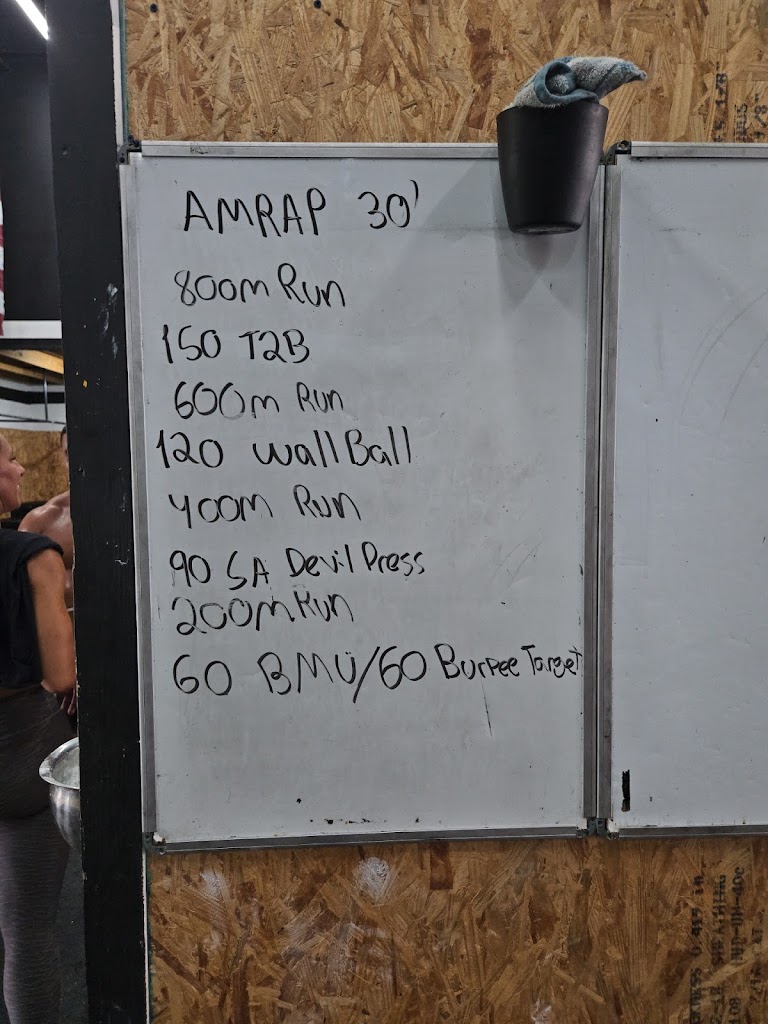 AMRAP 30'
800m Run
150 T2B
600m Run
120 Wall Ball
400m Run
90 SA Devil Press
200m Run
60 BMU/60 Burpee Target